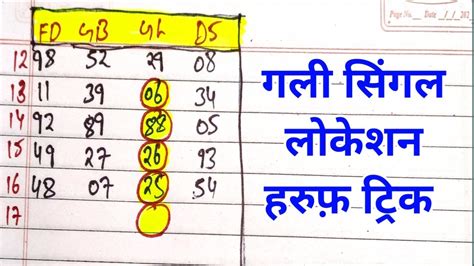 Page No. Date / / 202
FD GB GL DS
12 98 52 29 08
13 11 39 06 34
14 92 89 88 05
15 49 27 26 93
16 48 07 25 54
17
गली सिंगल
लोकेशन
हरुफ़ ट्रिक